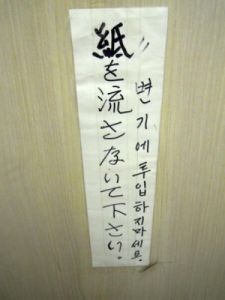 紙を流さないで下さい。
변기에 투입하지마세요.